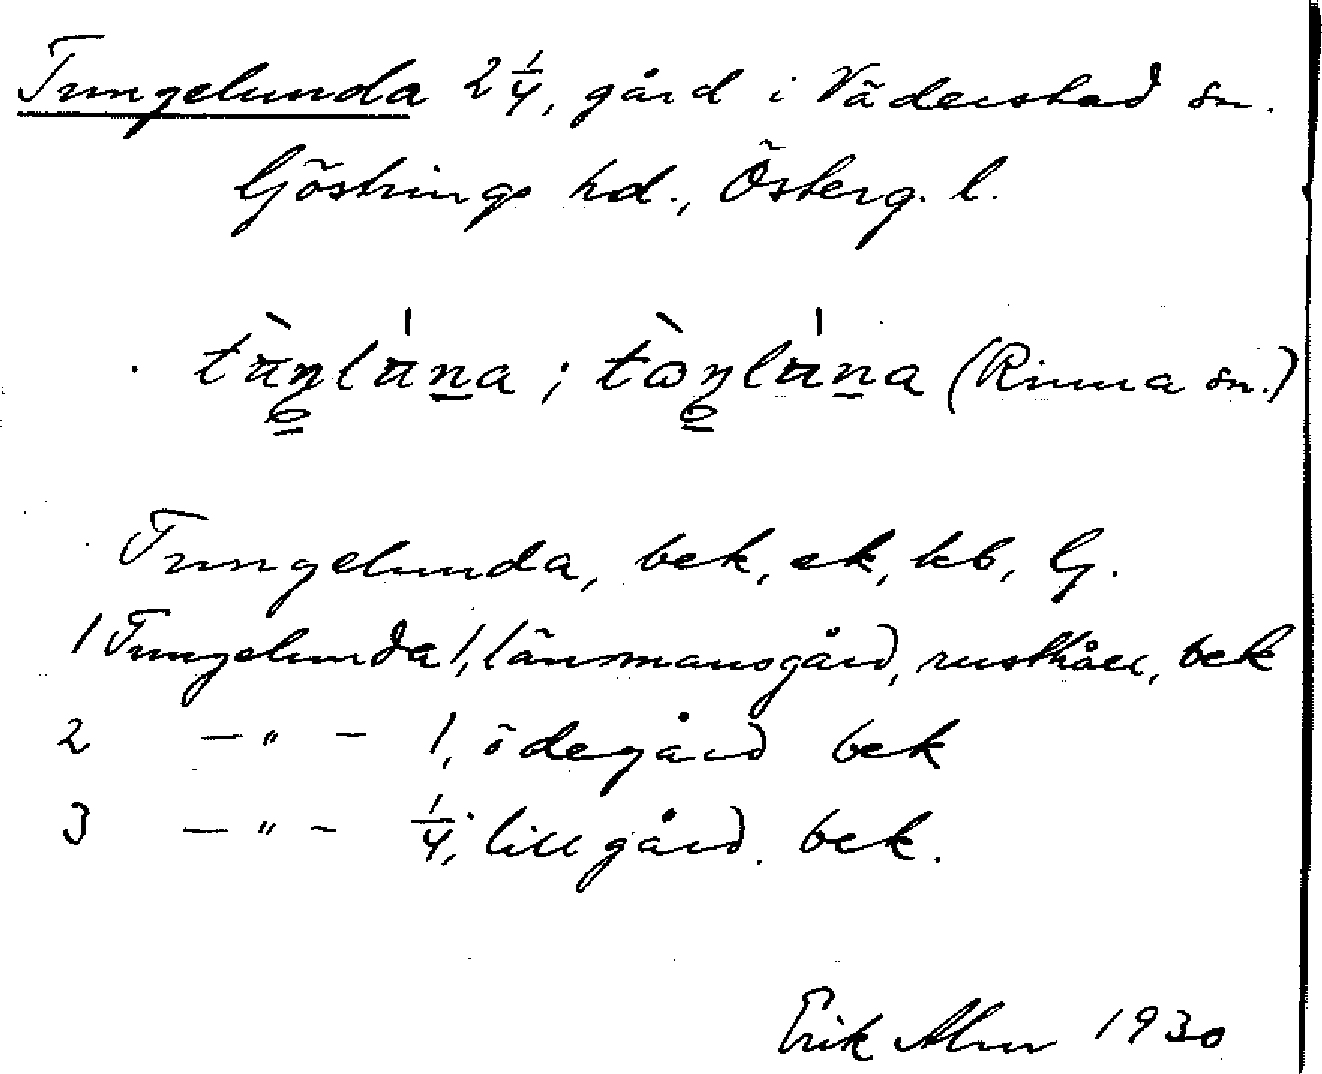 Tungelunda 2 1/4, gård i Väderstad sn.
Göstrings hd., Österg. l.
(Rinna sn.)
Tungelunda, bek, ek, kb, G.
1 Tungelunda 1, länsmansgård, rusthåll, bek
2 —"— 1, ödegård bek
3 —"— 1/4, lillgård. bek.
Erik Abrn 1930